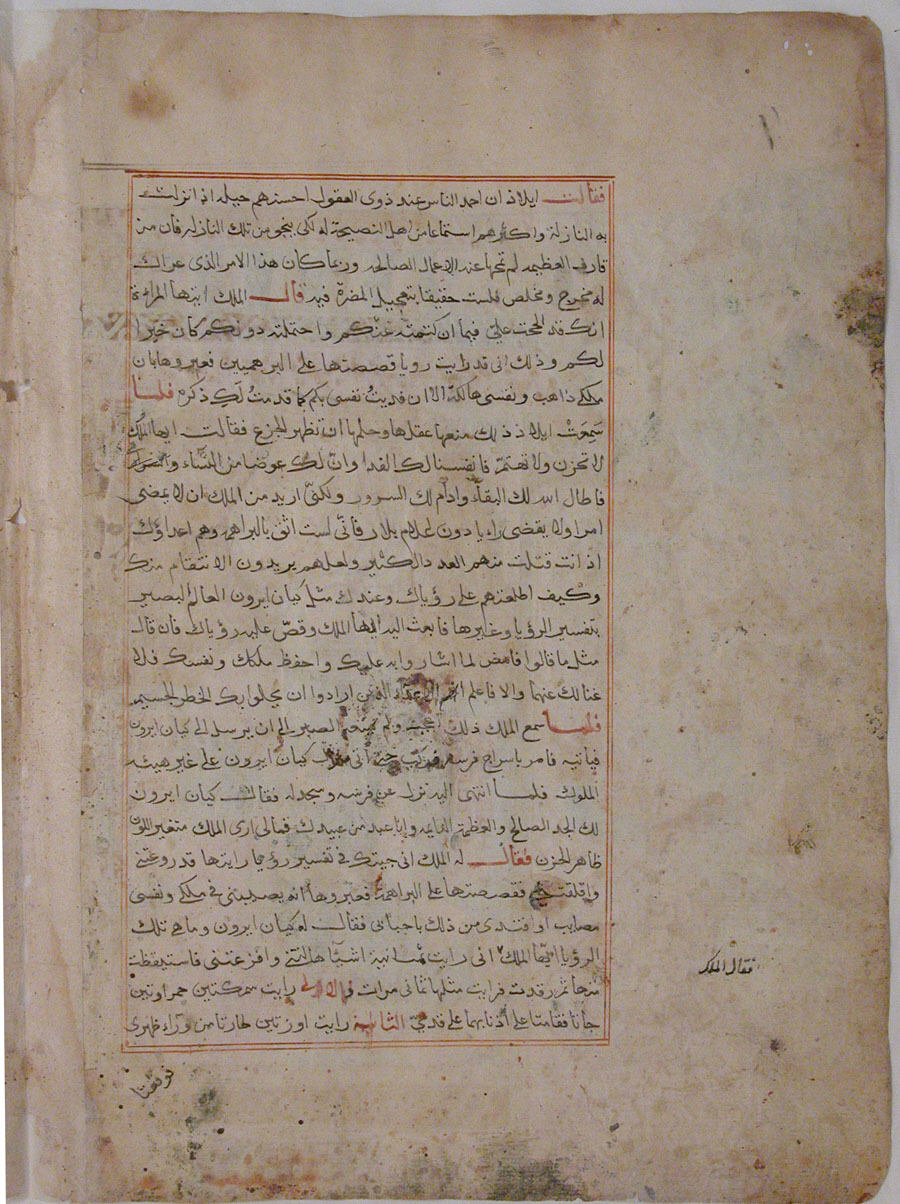 فقالت ايلاذ ان احمد الناس عند ذوى العقول احسنهم حيلة اذ انزلت
به النازلة واكثرهم استماعا من اهل النصيحة له لكى ينجو من تلك النازلة فان من
قارف العظيمه لم تمحها عنه الاعمال الصالحه وربما كان هذا الامر الذى عراك
له مخرج ومخلص فلست حقيقا بتعجيل المضرة فيه قال الملك ايتها المراءة
انك قد الححت على فيما ان كتمته عنكم واحتملته دونكم كان خيرا
لكم وذلك انى قد رايت رويا قصصتها على البرهميين فعبروها بان
ملكى ذاهب ونفسى هالكة الا ان فديت نفسى بكم كما قدمتُ لَكِ ذكره فلما
سَمِعَتْ ايلاذ ذلك منعها عقلها وحلمها ان تظهر الجزع فقالت ايها الملك
لا تحزن ولا تهتم فانفسنا لك الفدا وان لك عوضا من النساء
فاطال الله لك البقاء وادام لك السرور ولكنى اريد من الملك ان لا يمضى
امرا ولا يقضى راءيا دون بلار فانى لست اثق بالبراهمه وهم اعداؤك
اذ انت قتلت منهم العدد الكثير ولعلهم يريدون الانتقام منك
وكيف اطلعتهم على رؤياك وعندك مثل كيان ايرون العالم البصير
بتفسير الرؤيا وغيرها فابعث اليه ايها الملك وقصّ عليه رؤياك فان قال
مثل ما قالوا فامض لما اشاروا به عليك واحفظ ملكك ونفسك فلا
غنا لك عنهما والا فاعلم انهم ارادوا ان الخطر الجسيم
فلما سمع الملك ذلك ولم الصبر الى ان يرسل الى كيان ايرون
فياتيه فامر باسراج فرسه فركب حتى اتى كيان ايرون على غير هيئه
الملوك فلما انتهى اليه نزل عن فرسه وسجد له فقال كيان ايرون
لك الجد الصالح والعظمة وانا عبد من عبيدك فمالى ارى الملك متغير اللون
ظاهر الحزن فقال له الملك انى جيتك فى تفسير رؤيا رايتها قد روعتنى
واقلقتنى فقصصتها على البراهمة فعبروها انه يصيبنى فى ملكى ونفسى
مصايب او افتدى من ذلك باحبائى فقال له كيان ايرون وما هى تلك
الرؤيا ايها الملك انى رايت ثمانية اشيآ هالتنى وافزعتنى فاستيقظت
منها ثم رقدت فرايت مثلها ثمانى مرات فالاولى رايت سمكتين حمراوتين
جاتا فقامتا على اذنابهما على قدمى الثانية رايت اوزتين طارتا من ورآء ظهرى
فقال الملك
فوقعتا